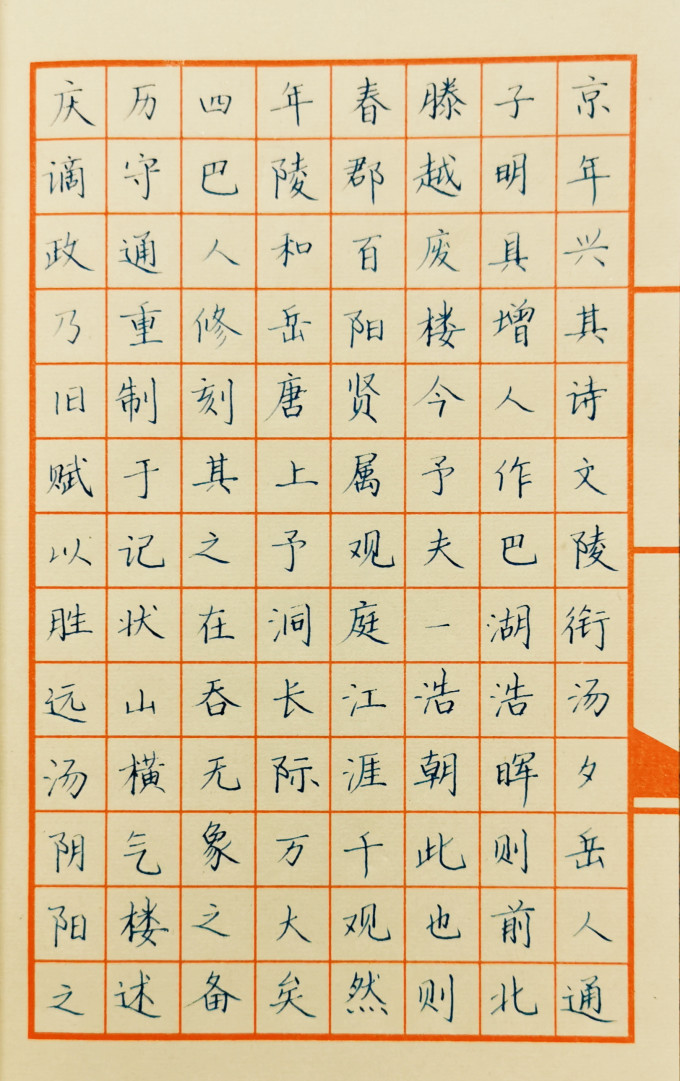 庆历四年春滕子京
谪守巴陵郡越明年
政通人和百废具兴
乃重修岳阳楼增其
旧制刻唐贤今人诗
赋于其上属予作文
以记之予观夫巴陵
胜状在洞庭一湖衔
远山吞长江浩浩汤
汤横无际涯朝晖夕
阴气象万千此则岳
阳楼之大观也前人
之述备矣然则北通